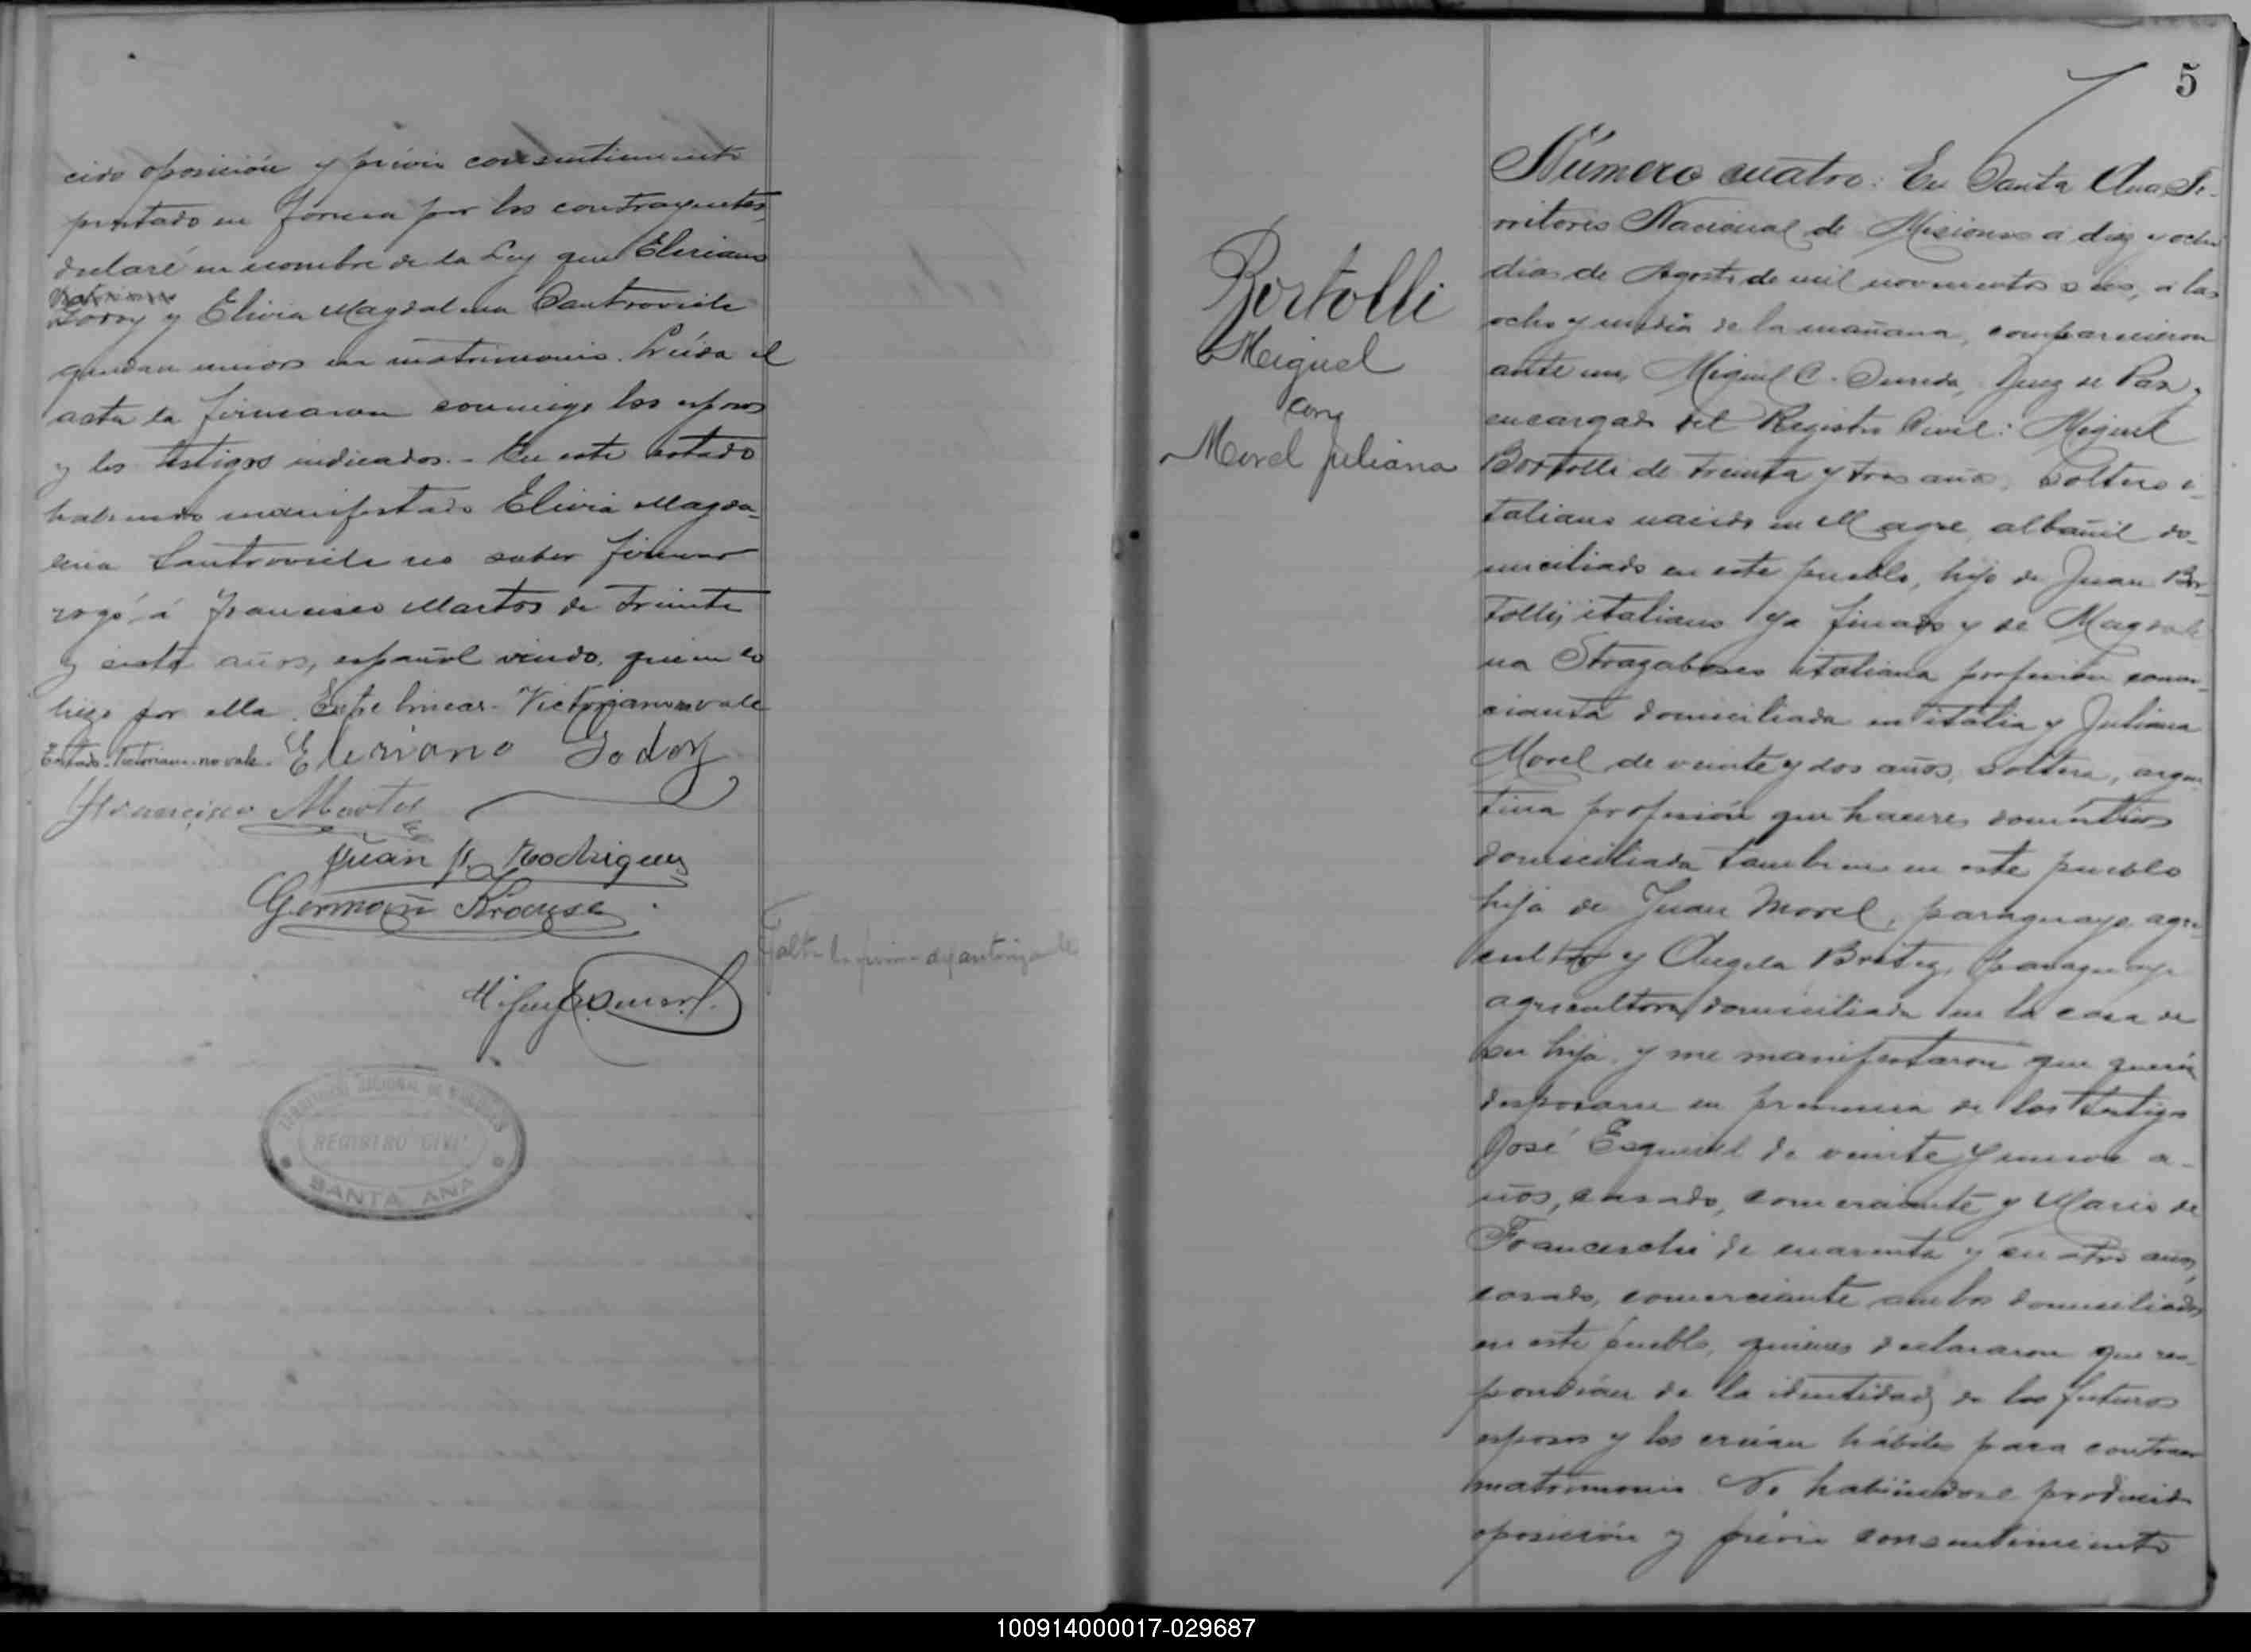 cido oposición y prévio consentimiento
prestado en forma por los contrayentes,
declaré en nombre de la Ley que Eleriano
Godoy y Elivia Magdalena
quedan unidos en matrimonio. Leída el
acta la firmaron conmigo los esposos
y los testigos indicados. - En este estado
habiendo manifestado Elivia Magda-
lena no saber firmar
rogó á Francisco Martos de treinta
y siete años, español viudo, quien lo
hizo por ella. Entre lineas - Victoriano no vale
Testado - Victoriano - no vale. Eleriano Godoy
Francisco Martos
Juan P. Rodriguez
German Krause
Miguel
Falta la firma autorizante
TERRITORIO NACIONAL DE MISIONES
REGISTRO CIVIL
SANTA ANA
5
Bortolli
Miguel
con
Morel Juliana
Número cuatro: En Santa Ana, Te-
rritorio Nacional de Misiones á diez y ocho
dias de Agosto de mil novecientos seis, á las
ocho y media de la mañana, comparecieron
ante mi, Miguel C. Juez de Paz y
encargado del Registro Civil: Miguel
Bortolli de treinta y tres años, soltero i-
taliano nacido en Magre, albañil do-
miciliado en este pueblo, hijo de Juan Bor-
tolli, italiano ya finado y de Magdale
na italiana profesión comer-
cianta domiciliada en italia y Juliana
Morel de veinte y dos años, soltera, argen
tina profesión que haceres domésticos
domiciliada tambien en este pueblo
hija de Juan Morel, paraguayo agri-
cultor y Angela Britez, paraguaya
agricultora, domiciliada en la casa de
su hija, y me manifestaron que querían
desposarse en presencia de los testigos
José Esquivel de veinte y nueve a-
ños, casado, comerciante y Mario de
Franceschi de cuarenta y cuatro años,
casado, comerciante ambos domiciliados
en este pueblo, quienes declararon que res-
pondían de la identidad de los futuros
esposos y los creían hábiles para contraer
matrimonio. No habiéndose producido
oposición y prévio consentimiento
100914000017-029687